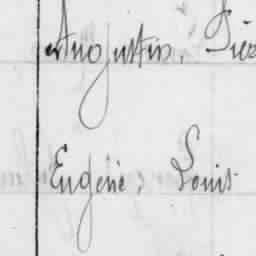 Augustin, Pier
Eugène, Louis